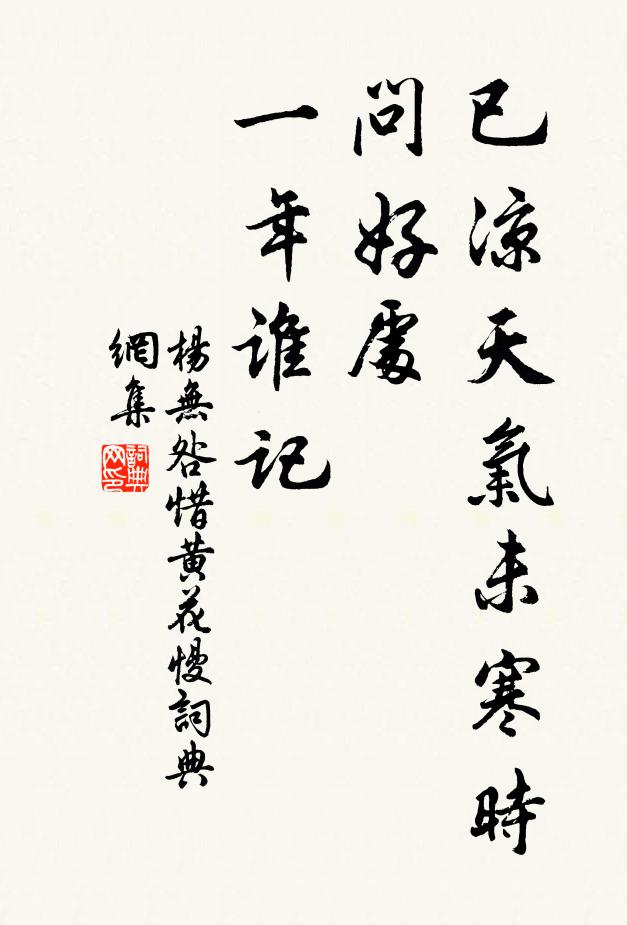 已涼天氣未寒時
問好處
一年誰記
楊無咎惜黃花慢詞典
網集
詞典
网印